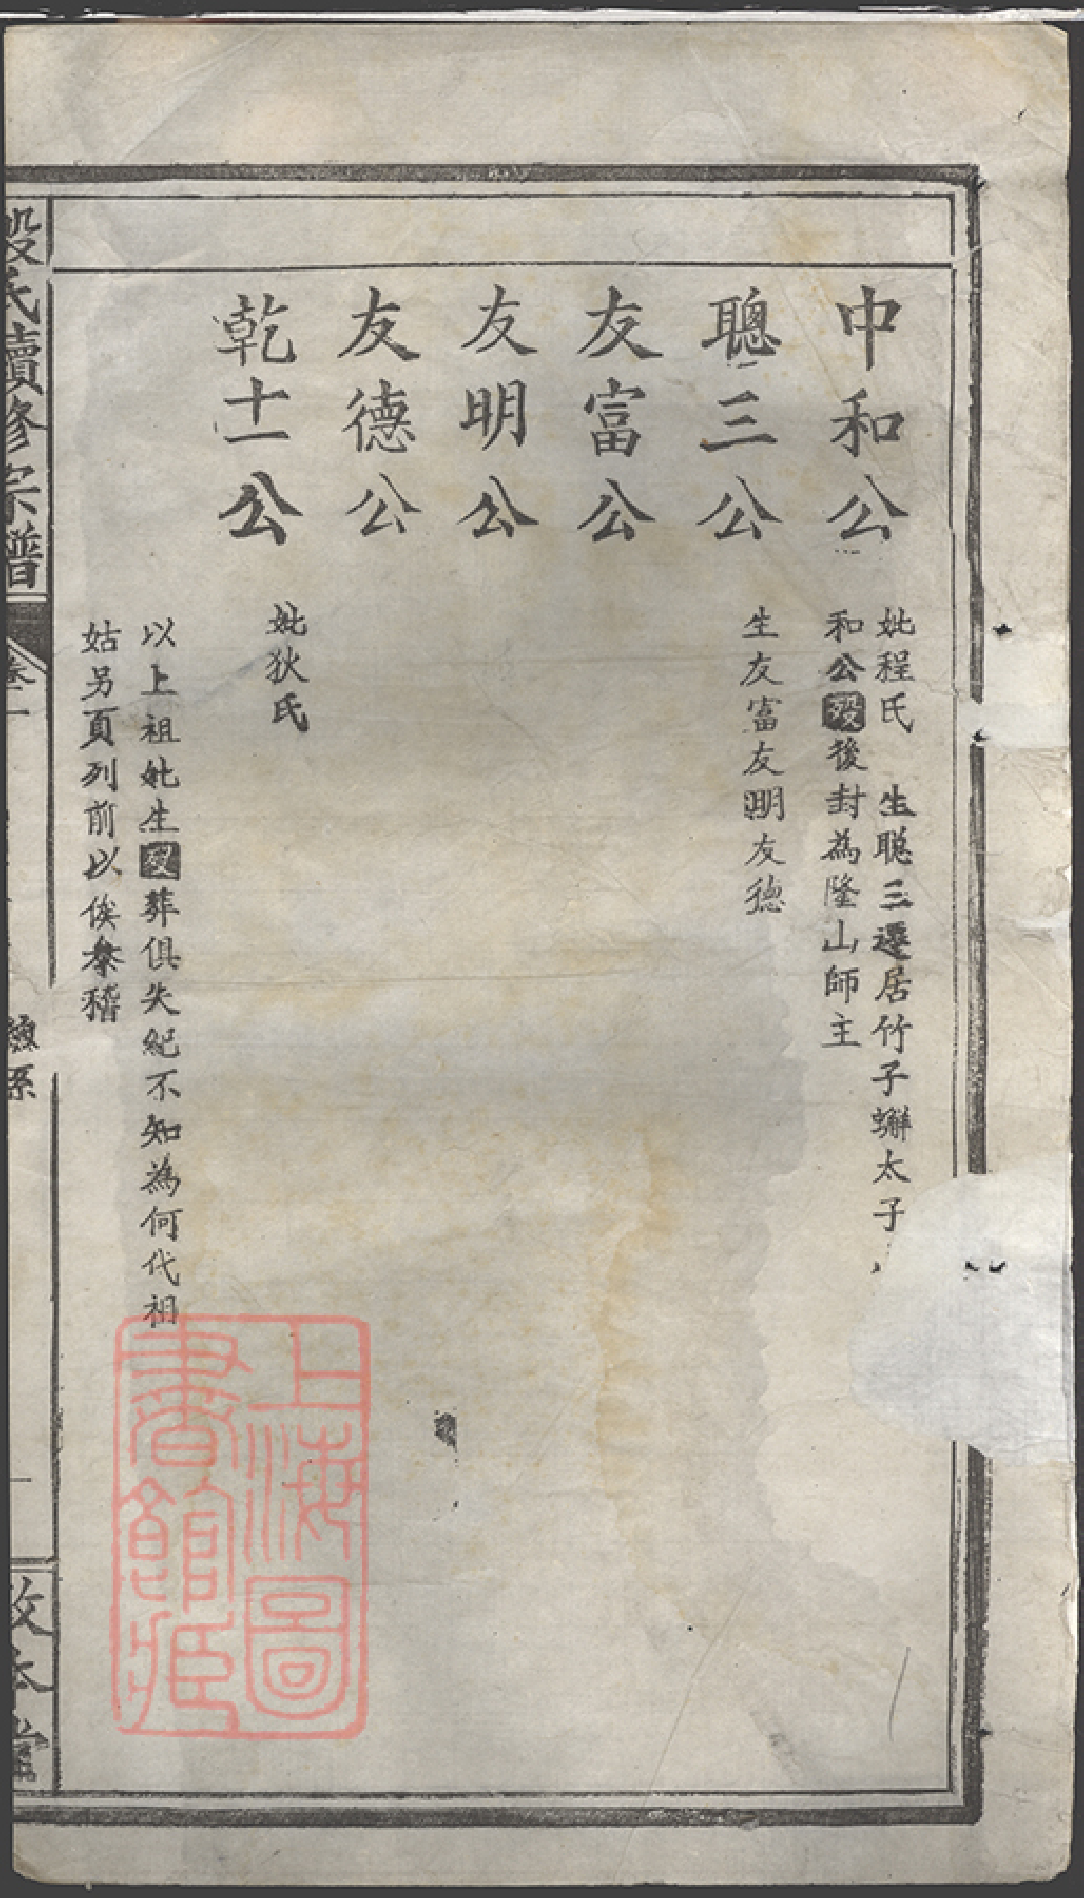 中和公
妣程氏　生聰三遷居竹子螄太子
和公歿後封為隆山師主
聰三公
生友富友明友德
友富公
友明公
友德公
乾十一公
妣狄氏
以上祖妣生歿葬俱失紀不知為何代祖
姑另頁列前以俟叅稽
段氏續修宗譜
卷一
總系
一
敦本堂
上海圖書館藏